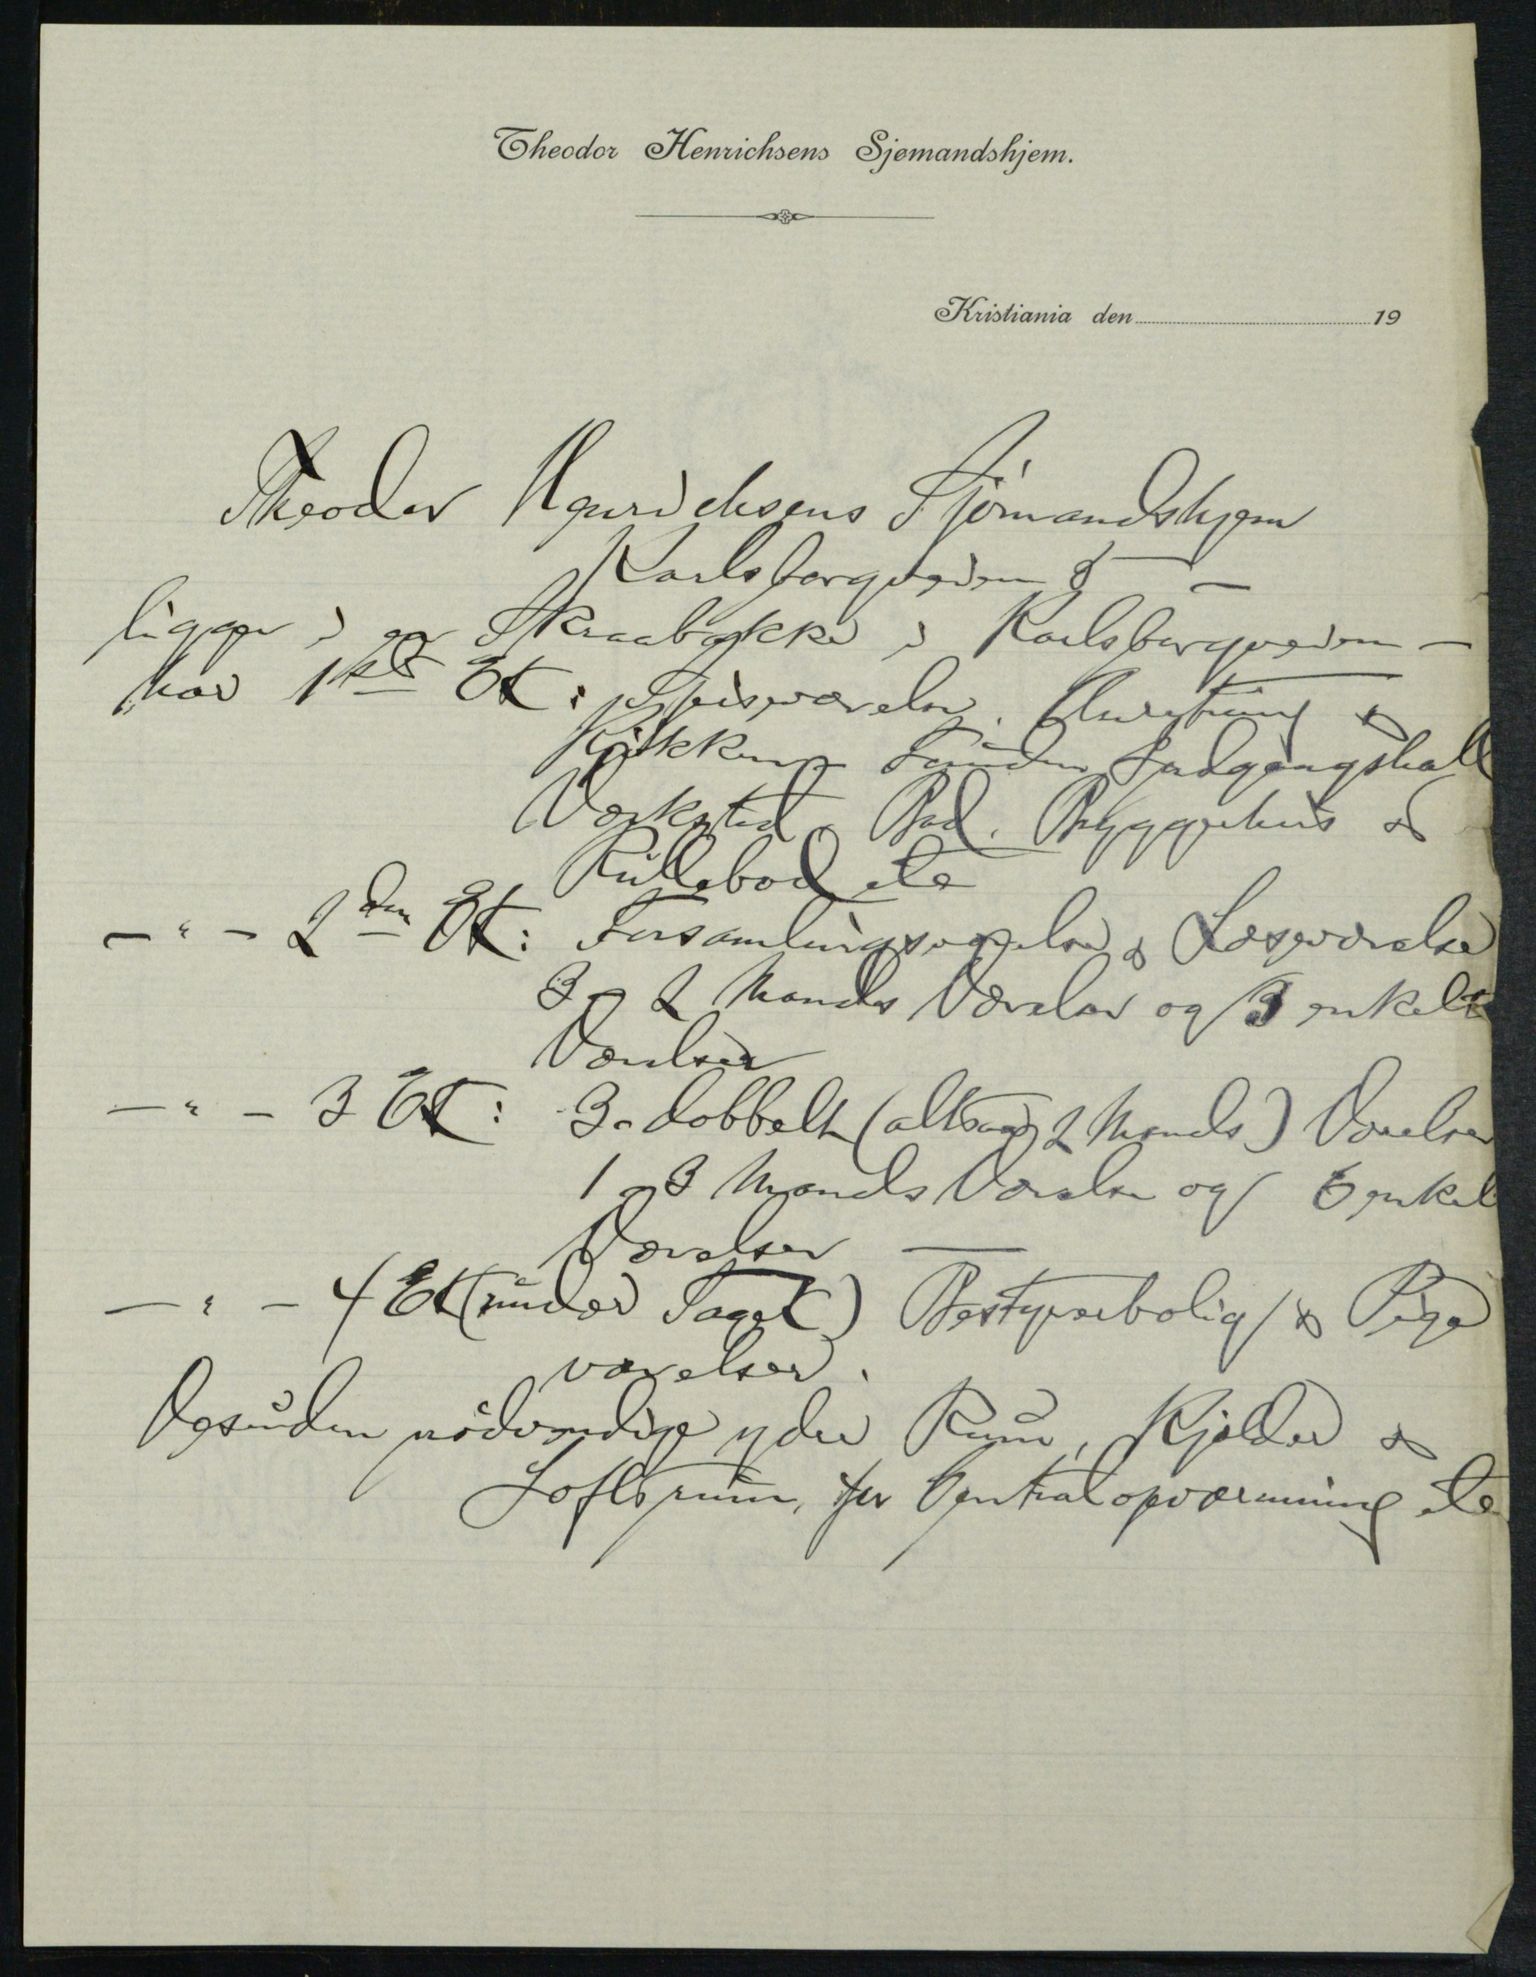 Theodor Henrichsens Sjømandshjem.
Kristiania den 19
Theodor Henrichsens Sjömandshjem
Karlsborgveien 5 —
ligger i en Skraabakke i Karlsborgveien —
har 1ste Et: Spiseværelse, Anretning &
Kjökken foruden Indgangshall
Verksted, Bad, Bryggerhus &
Rullebod etc
— " — 2den Et: Forsamlingsværelse & Læseværelse
3 - 2 Mands Værelser og 3 enkelt
Værelser
— " — 3 Et: 3 - dobbelt (altsaa 2 Mands) Værelser
1 - 3 Mands Værelse og 6 enkelt
Værelser —
— " — 4 Et (under Taget) Bestyrerbolig & Pige
værelser.
Desuden nödvendige ydre Rum, Kjelder &
Loftsrum, for Centralopvarmning etc